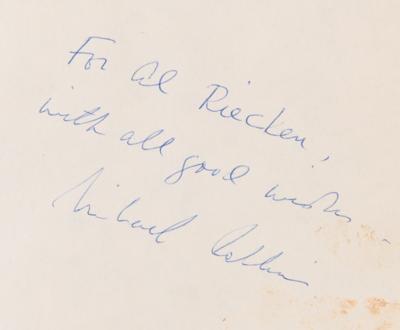 For Al Riecken,
with all good wishes –
Michael Collins